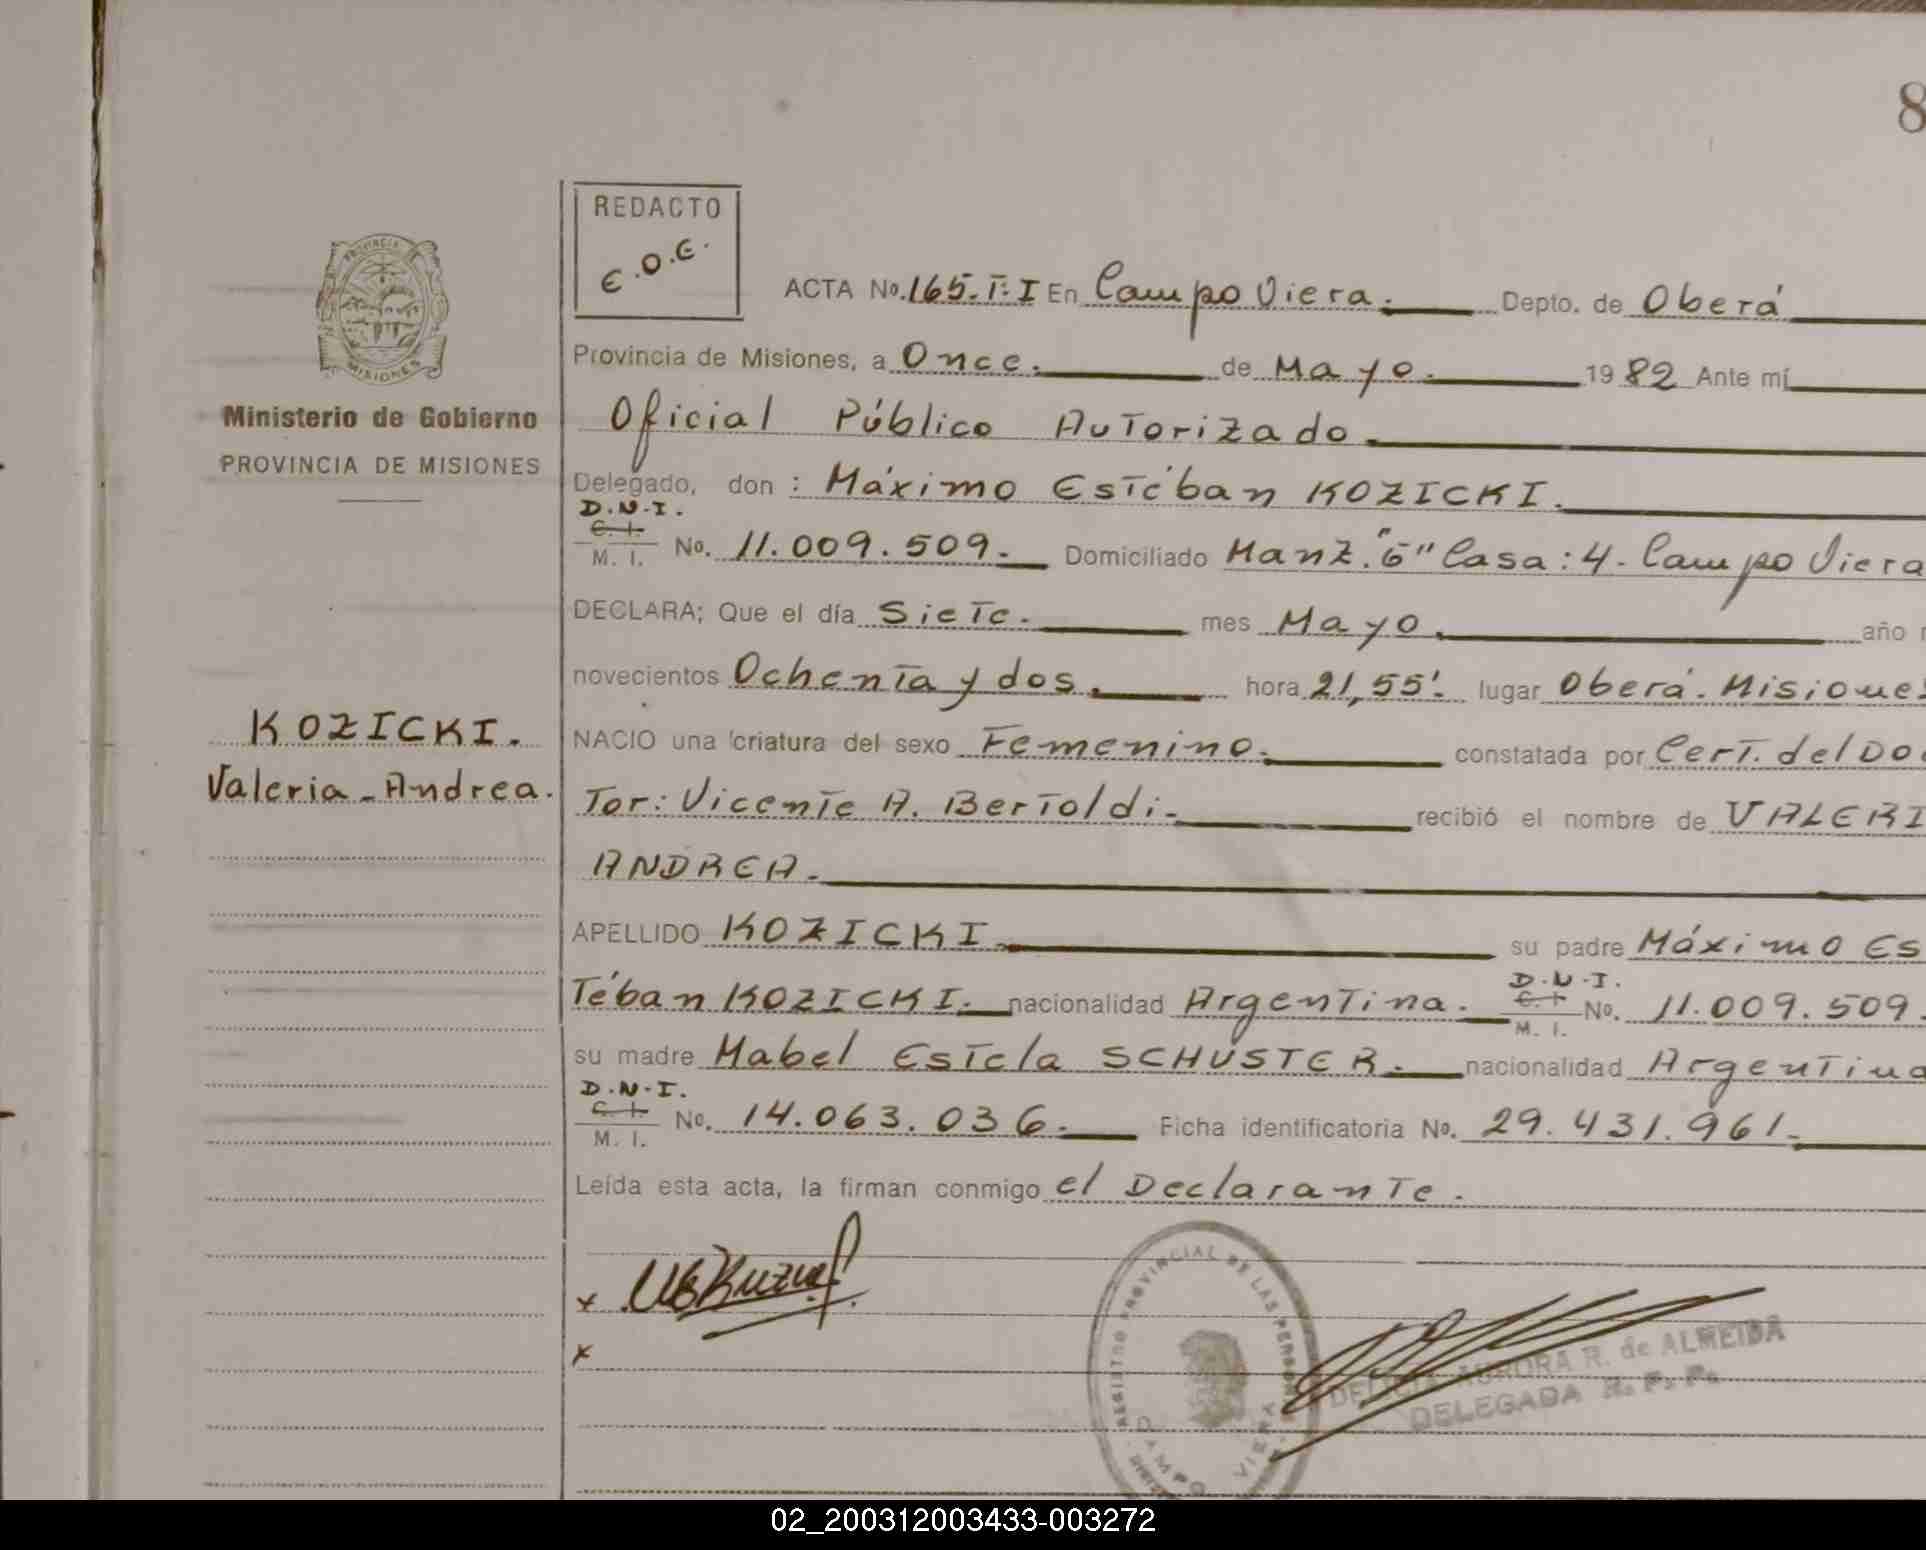 8
REDACTO
E.O.E.
ACTA No. 165.T:I En Campo Viera. Depto. de Oberá
Provincia de Misiones, a Once. de Mayo. 1982 Ante mí
Oficial Público Autorizado.
Delegado, don : Máximo Estéban KOZICKI.
D.N.I.
C. I.
M. I. No. 11.009.509. Domiciliado Manz. "6" Casa: 4. Campo Viera
DECLARA; Que el día Siete. mes Mayo. año
novecientos Ochenta y dos. hora 21,55'. lugar Oberá. Misiones
NACIO una criatura del sexo Femenino. constatada por Cert. del Doc
Tor: Vicente A. Bertoldi. recibió el nombre de VALERI
ANDREA.
APELLIDO KOZICKI. su padre Máximo Es
Téban KOZICKI. nacionalidad Argentina. D.N.I. C. I. M. I. No. 11.009.509.
su madre Mabel Estela SCHUSTER. nacionalidad Argentina
D.N.I.
C. I.
M. I. No. 14.063.036. Ficha identificatoria No. 29.431.961.
Leída esta acta, la firman conmigo el Declarante.
PROVINCIA
MISIONES
Ministerio de Gobierno
PROVINCIA DE MISIONES
KOZICKI.
Valeria-Andrea.
x
x
REGISTRO PROVINCIAL DE LAS PERSONAS
CAMPO VIERA
DELICIA AURORA R. de ALMEIDA
DELEGADA R. P. P.
02_200312003433-003272